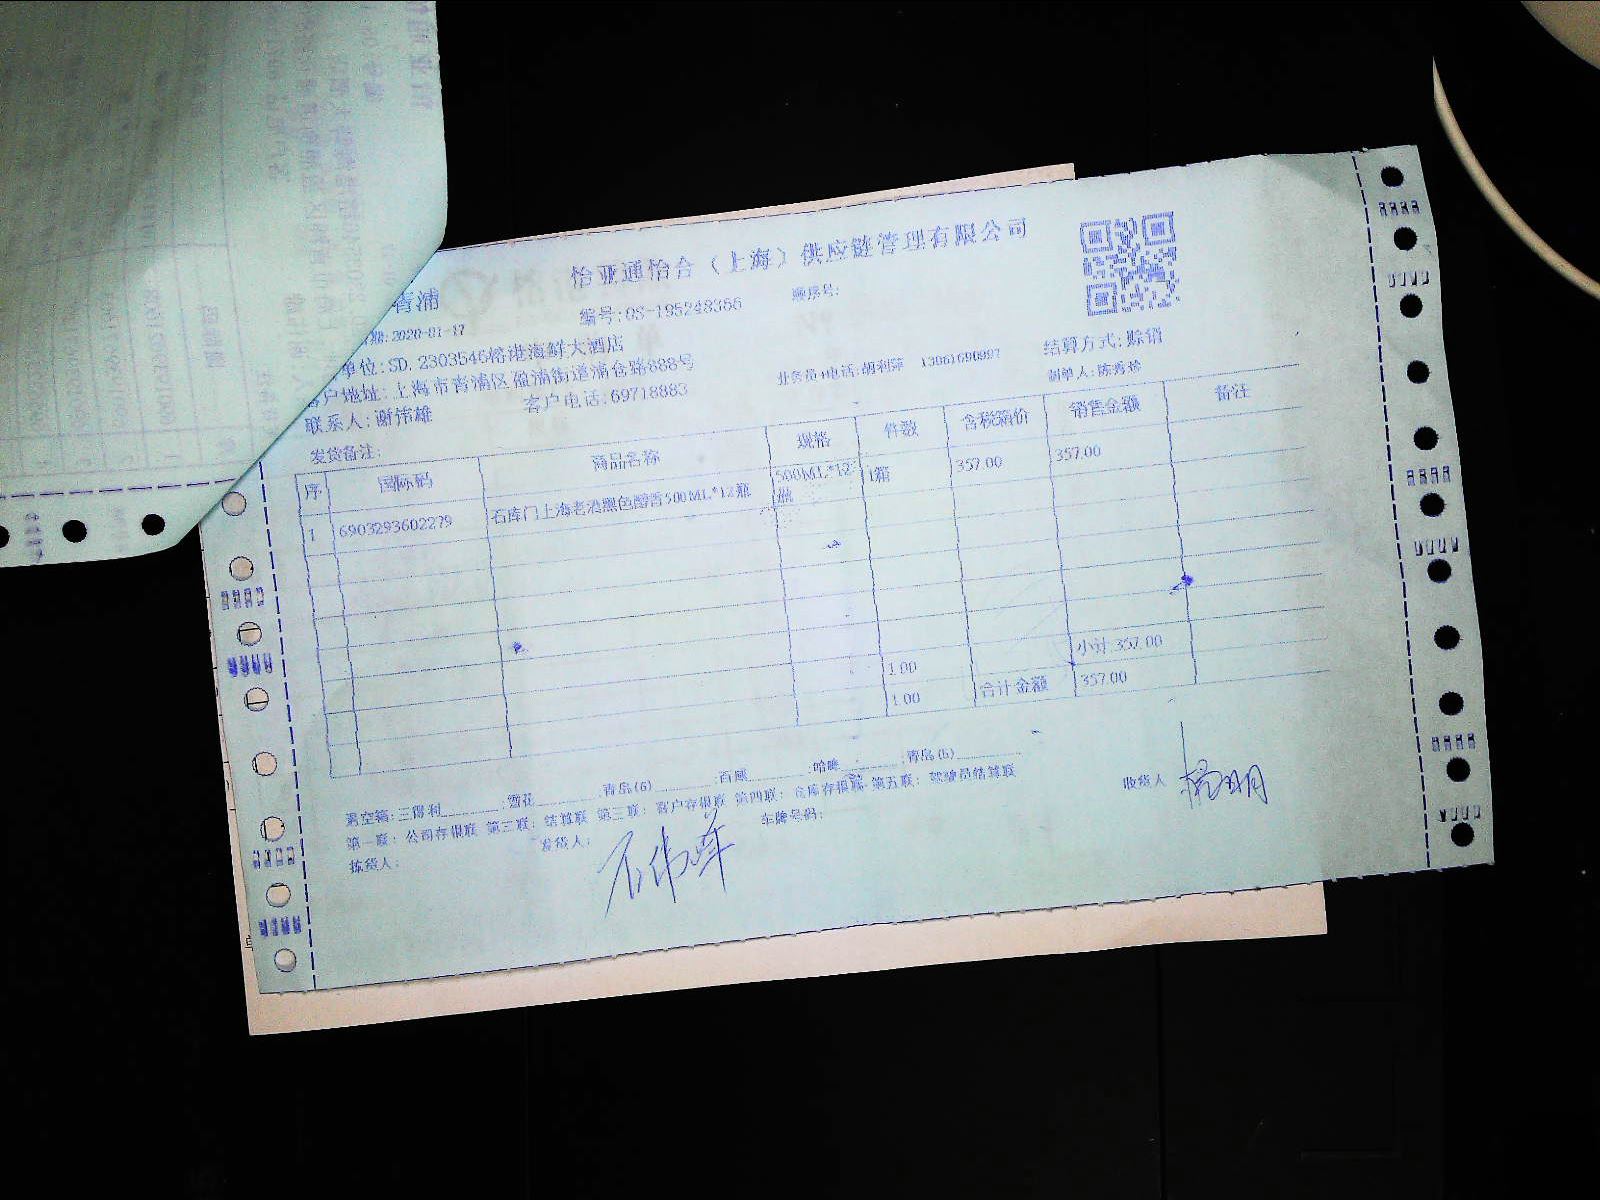 怡亚通怡合（上海）供应链管理有限公司
青浦
编号:OS-195248366
顺序号:
期:2020-01-17
单位:SD.2303546榕港海鲜大酒店
业务员+电话:胡利萍
结算方式:赊销
客户地址:上海市青浦区盈浦街道浦仓路888号
制单人:陈秀珍
联系人:谢伟雄
客户电话:69718883
发货备注:
序 国际码 商品名称 规格 件数 含税箱价 销售金额 备注
1 6903293602279 石库门上海老酒黑色醇香500ML*12瓶 500ML*12瓶 1箱 357.00 357.00
1.00 小计:357.00
1.00 合计金额 357.00
退空箱:三得利 :雪花 :青岛(G) :百威 :哈啤 :青岛(b)
第一联：公司存根联 第二联：结算联 第三联：客户存根联 第四联：仓库存根联 第五联：驾驶员结算联
拣货人:
发货人:
车牌号码:
收货人